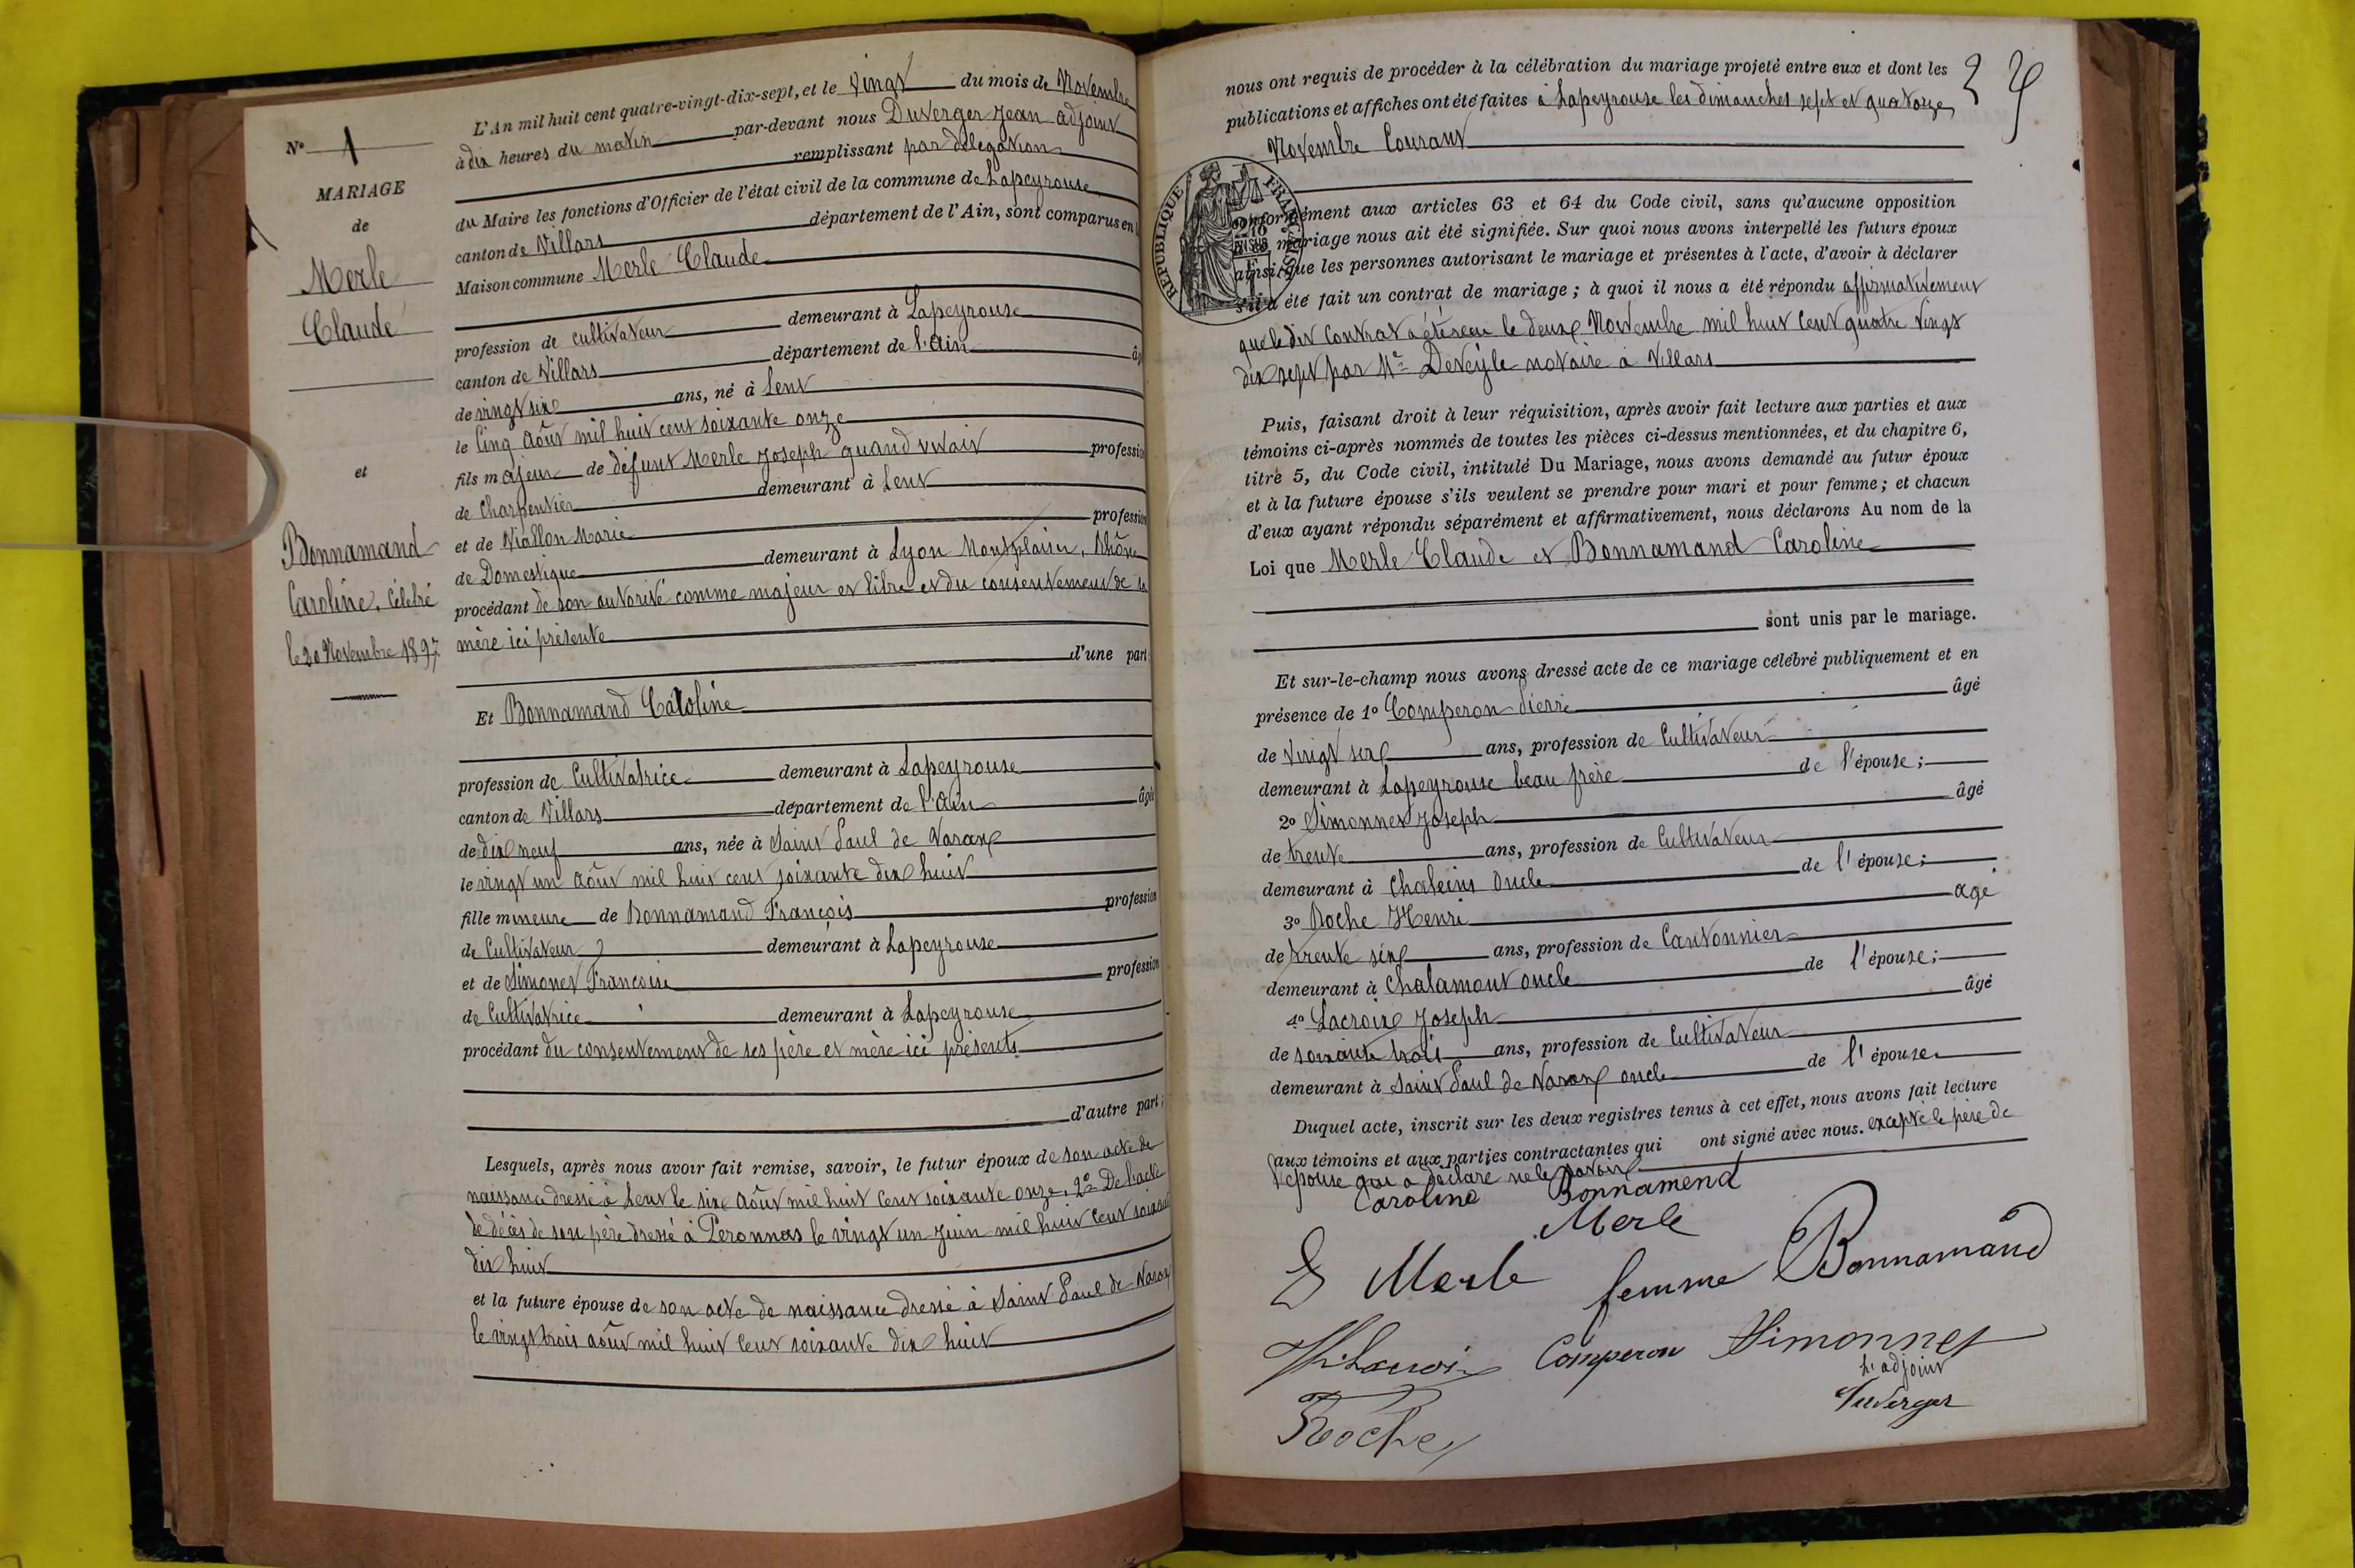 N° 1
MARIAGE
de
Merle
Claude
et
Bonnamand
Caroline. Célébré
le 20 Novembre 1897.
L'An mil huit cent quatre-vingt-dix-sept, et le Vingt du mois de Novembre
à dix heures du matin par-devant nous Duverger Jean adjoint
remplissant par délégation
du Maire les fonctions d'Officier de l'état civil de la commune de Lapeyrouse
canton de Villars département de l'Ain, sont comparus en
Maison commune Merle Claude
profession de cultivateur demeurant à Lapeyrouse
canton de Villars département de l'Ain âg
de vingt six ans, né à Lent
le Cinq Août mil huit cent soixante onze
fils majeur de défunt Merle Joseph quand vivait profession
de Charpentier demeurant à Lent
et de Viallon Marie profession
de Domestique demeurant à Lyon Montplaisir, Rhône
procédant de son autorité comme majeur et libre et du consentement de sa
mère ici présente
d'une part:
Et Bonnamand Caroline
profession de Cultivatrice demeurant à Lapeyrouse
canton de Villars département de l'Ain âgée
de dix neuf ans, née à Saint Paul de Varax
le vingt un Août mil huit cent soixante dix huit
fille mineure de Bonnamand François profession
de Cultivateur demeurant à Lapeyrouse
et de Simonet Françoise profession
de Cultivatrice demeurant à Lapeyrouse
procédant du consentement de ses père et mère ici présents
d'autre part;
Lesquels, après nous avoir fait remise, savoir, le futur époux de son acte de
naissance dressé à Lent le six Août mil huit cent soixante onze. 2° De l'acte
de décès de son père dressé à Péronnas le vingt un Juin mil huit cent soixante
dix huit
et la future épouse de son acte de naissance dressé à Saint Paul de Varax
le vingt trois août mil huit cent soixante dix huit
nous ont requis de procéder à la célébration du mariage projeté entre eux et dont les
publications et affiches ont été faites à Lapeyrouse les dimanches sept et quatorze
Novembre Courant
RÉPUBLIQUE FRANÇAISE
conformément aux articles 63 et 64 du Code civil, sans qu'aucune opposition
à ce mariage nous ait été signifiée. Sur quoi nous avons interpellé les futurs époux
ainsi que les personnes autorisant le mariage et présentes à l'acte, d'avoir à déclarer
s'il a été fait un contrat de mariage; à quoi il nous a été répondu affirmativement
que le dit Contrat a été reçu le deux Novembre mil huit cent quatre vingt
dix sept par Me Deveyle notaire à Villars
Puis, faisant droit à leur réquisition, après avoir fait lecture aux parties et aux
témoins ci-après nommés de toutes les pièces ci-dessus mentionnées, et du chapitre 6,
titre 5, du Code civil, intitulé Du Mariage, nous avons demandé au futur époux
et à la future épouse s'ils veulent se prendre pour mari et pour femme; et chacun
d'eux ayant répondu séparément et affirmativement, nous déclarons Au nom de la
Loi que Merle Claude et Bonnamand Caroline
sont unis par le mariage.
Et sur-le-champ nous avons dressé acte de ce mariage célébré publiquement et en
présence de 1° Comperon Pierre âgé
de Vingt six ans, profession de Cultivateur
demeurant à Lapeyrouse beau frère de l'épouse;
2° Simonnet Joseph âgé
de trente ans, profession de Cultivateur
demeurant à Chaleins oncle de l'épouse;
3° Roche Henri âgé
de trente six ans, profession de Cantonnier
demeurant à Chalamont oncle de l'épouse;
4° Lacroix Joseph âgé
de soixante trois ans, profession de Cultivateur
demeurant à Saint Paul de Varax oncle de l'épouse
Duquel acte, inscrit sur les deux registres tenus à cet effet, nous avons fait lecture
aux témoins et aux parties contractantes qui ont signé avec nous. excepté le père de
l'épouse qui a déclaré ne le savoir
Caroline Bonnamend
Merle
Merle femme Bonnamand
Comperon Simonnet
L'adjoint
Duverger
Roche